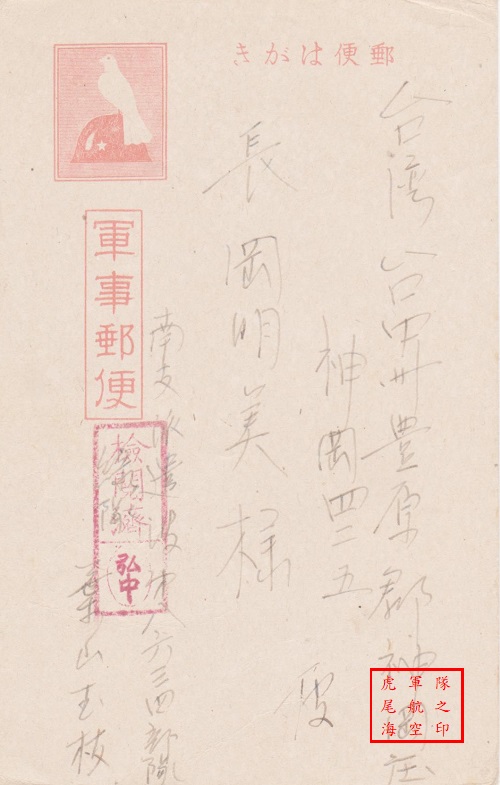 郵便はがき
軍事郵便
台湾台中州豊原郡神岡庄
神岡四三五
長岡明美様
南支派遣波第八六三四部隊
葉山玉枝
検閲済
弘中
虎尾海
軍航空
隊之印